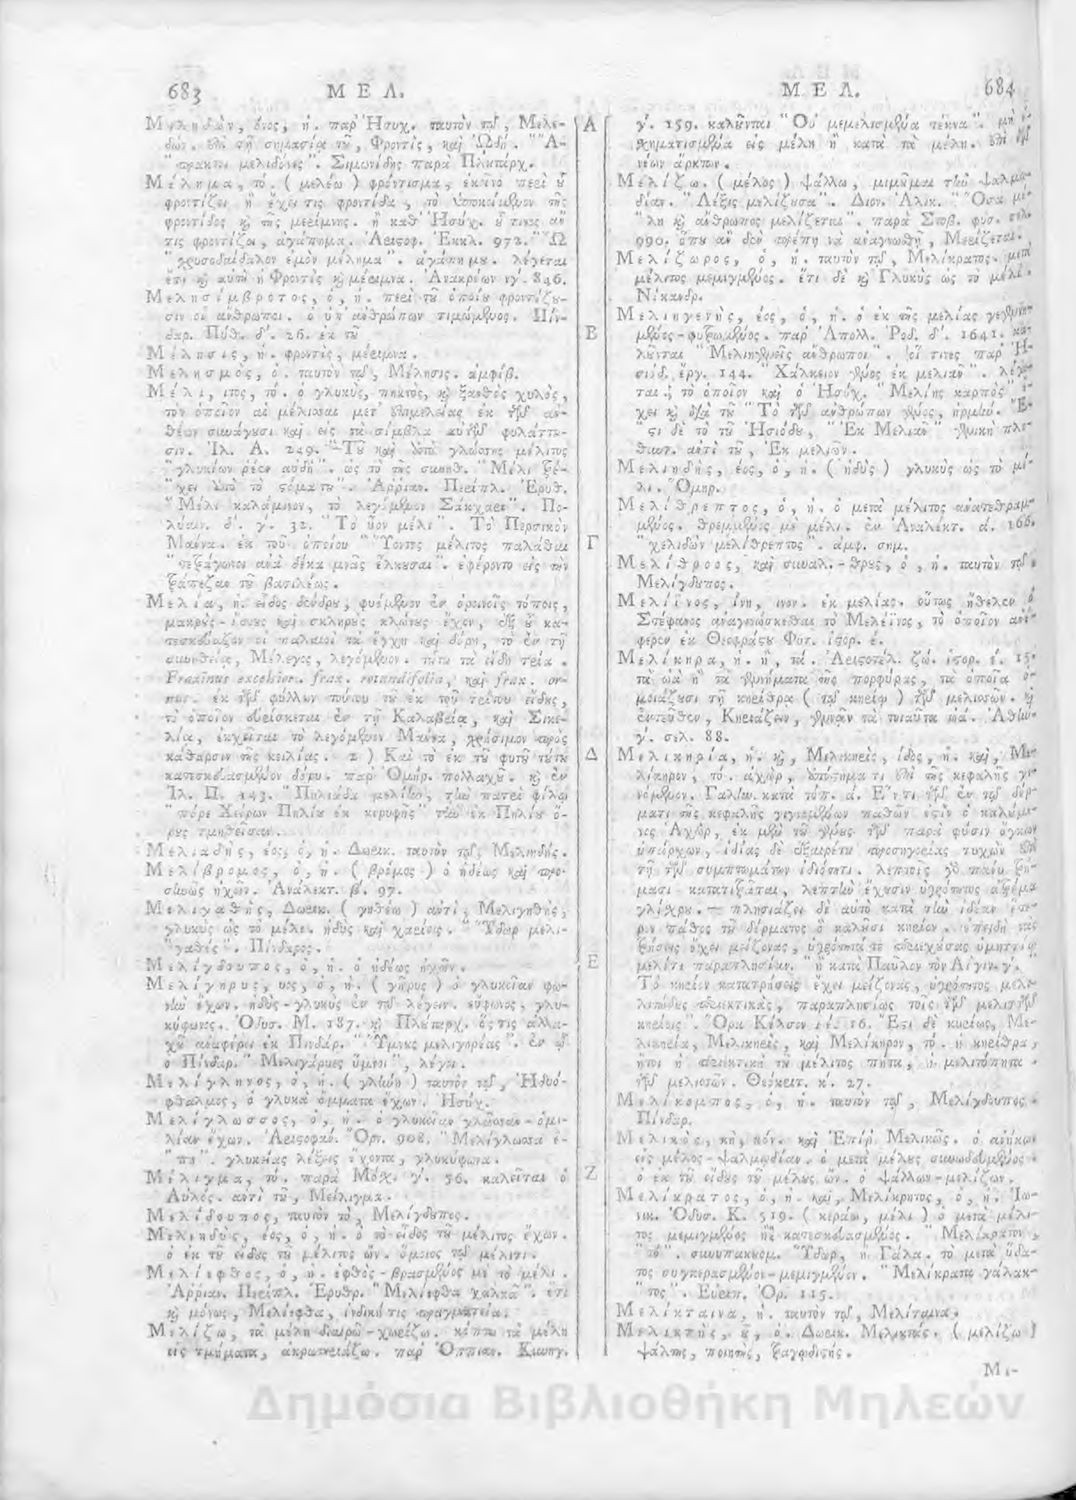 683 Μ Ε Λ.
Μεληδών, όνος, ἡ. παρ' Ἡσυχ. ταυτὸν τῷ, Μελε-
δών. ἐπὶ τῇ σημασίᾳ τῦ, Φροντίς, καὶ Ὠδή. "Ἀ-
"πρακτοι μελιδόνες". Σιμωνίδης παρὰ Πλουτάρχ.
Μέλημα, τό. (μελέω) φρόντισμα, ἐκεῖνο περὶ ὗ
φροντίζει ἢ ἔχει τις φροντίδα, τὸ ὑποκείμενον τῆς
φροντίδος καὶ τῆς μερίμνης. ἢ καθ' Ἡσύχ. ὗ τινος ἄν
τις φροντίζοι, ἀγάπημα. Ἀριστοφ. Ἐκκλ. 972. "Ὦ
"χρυσοδαίδαλον ἐμὸν μέλημα". ἀγάπη μυ. λέγεται
ἔτι καὶ αὐτὴ ἡ Φροντὶς καὶ μέριμνα. Ἀνακρέων νγ'. 846.
Μελησίμβροτος, ὁ, ἡ. περὶ τῦ ὁποίυ φροντίζυ-
σιν οἱ ἄνθρωποι. ὁ ὑπ' ἀνθρώπων τιμώμενος. Πίν-
δαρ. Πύθ. δ'. 26. ἐκ τῦ
Μέλησις, ἡ. φροντίς, μέριμνα.
Μελησμός, ὁ. ταυτὸν τῷ, Μέλησις. ἀμφίβ.
Μέλι, ιτος, τό. ὁ γλυκύς, πηκτός, καὶ ξανθὸς χυλός,
τὸν ὁποῖον αἱ μέλισσαι μετ' ἐπιμελείας ἐκ τῶν ἀν-
θέων συνάγυσι καὶ εἰς τὰ σίμβλα αὐτῶν φυλάττυ-
σιν. Ἰλ. Α. 249. "Τῦ καὶ ἀπὸ γλώσσης μέλιτος
"γλυκίων ῥέεν αὐδή". ὡς τὸ τῆς συνηθ. "Μέλι τρέ-
"χει ἀπὸ τὸ στόμα τυ". Ἀρριαν. Περίπλ. Ἐρυθ.
"Μέλι καλάμινον, τὸ λεγόμενον Σάκχαρι". Πο-
λύαιν. δ'. γ'. 32. "Τὸ ὗον μέλι". Τὸ Περσικὸν
Μάννα. ἐκ τοῦ ὁποίου "Ὕοντος μέλιτος παλάθαι
"τετράγωνοι ἀνὰ δέκα μνᾶς ἕλκυσαι". ἐφέροντο εἰς τὴν
τράπεζαν τῦ βασιλέως.
Μελία, ἡ. εἶδος δένδρυ, φυόμενον ἐν ὀρεινοῖς τόποις,
μακρυς-ἴσυς καὶ σκληρυς κλώνυς ἔχον, ἐξ ὗ κα-
τεσκεύαζον οἱ παλαιοὶ τὰ ἔγχη καὶ δόρη, τὸ ἐν τῇ
συνηθείᾳ, Μέλεγος, λεγόμενον. τύτυ τὰ εἴδη τρία.
Fraxinus excelsior. frax. rotundifolia, καὶ frax. or-
nus. ἐκ τῶν φύλλων τύτυ τῦ ἐκ τοῦ τρίτου εἴδυς,
τὸ ὁποῖον εὑρίσκεται ἐν τῇ Καλαβρίᾳ, καὶ Σικε-
λίᾳ, ἐκχεῖται τὸ λεγόμενον Μάννα, χρήσιμον πρὸς
κάθαρσιν τῆς κοιλίας. 2) Καὶ τὸ ἐκ τῦ φυτῦ τύτυ
κατεσκευασμένον δόρυ. παρ' Ὁμήρ. πολλαχῦ. καὶ ἐν
Ἰλ. Π. 143. "Πηλιάδα μελίην, τὴν πατρὶ φίλῳ
"πόρε Χείρων Πηλίυ ἐκ κορυφῆς" τὴν ἐκ Πηλίυ ὄ-
ρυς τμηθεῖσαν.
Μελιαδής, έος, ὁ, ἡ. Δωρικ. ταυτὸν τῷ, Μελιηδής.
Μελίβρομος, ὁ, ἡ. (βρόμος) ὁ ἡδέως καὶ προ-
σηνῶς ἠχῶν. Ἀνάλεκτ. β. 97.
Μελιγαθής, Δωρικ. (γηθέω) αὐτί, Μελιγηθής,
γλυκὺς ὡς τὸ μέλι. ἡδὺς καὶ χαρίεις. "Ὕδωρ μελι-
"γαθές". Πίνδαρος.
Μελίγδουπος, ὁ, ἡ. ὁ ἡδέως ἠχῶν.
Μελίγηρυς, υος, ὁ, ἡ. (γῆρυς) ὁ γλυκεῖαν φω-
νὴν ἔχων. ἡδὺς-γλυκὺς ἐν τῷ λέγειν. εὔφωνος, γλυ-
κύφωνος. Ὀδυσ. Μ. 187. καὶ Πλυτάρχ. ὅςτις ἀλλα-
χῦ ἀναφέρει ἐκ Πινδάρ. "Ὕμνυς μελιγορέας". ἐν ᾧ
ὁ Πίνδαρ. "Μελιγάρυες ὕμνοι", λέγει.
Μελίγληνος, ὁ, ἡ. (γλήνη) ταυτὸν τῷ, Ἡδυό-
φθαλμος, ὁ γλυκὰ ὄμματα ἔχων. Ἡσύχ.
Μελίγλωσσος, ὁ, ἡ. ὁ γλυκεῖαν γλῶσσαν-ὁμι-
λίαν ἔχων. Ἀριστοφάν. Ὄρν. 908. "Μελίγλωσσα ἔ-
"πη". γλυκείας λέξεις ἔχοντα, γλυκύφωνα.
Μέλιγμα, τό. παρὰ Μόχ. γ'. 56. καλεῖται ὁ
Αὐλός. ἀντὶ τῦ, Μείλιγμα.
Μελίδουπος, ταυτὸν τῷ, Μελίγδυπος.
Μελιειδής, έος, ὁ, ἡ. ὁ τὸ εἶδος τῦ μέλιτος ἔχων.
ὁ ἐκ τῦ εἴδυς τῦ μέλιτος ὤν. ὅμοιος τῷ μέλιτι.
Μελίεφθος, ὁ, ἡ. ἑφθός-βρασμένος μὲ τὸ μέλι.
Ἀρριαν. Περίπλ. Ἐρυθρ. "Μελίεφθα χαλκᾶ". ἔτι
καὶ μόνως, Μελίεφθα, ἰνδική τις πραγματεία.
Μελίζω, τὰ μέλη διαιρῶ-χωρίζω. κόπτω τὰ μέλη
εἰς τμήματα, ἀκρωτηριάζω. παρ' Ὀππιαν. Κυνηγ.
Α
Β
Γ
Δ
Ε
Ζ
Μ Ε Λ. 684
γ'. 159. καλῦνται "Οὐ μεμελισμένα τέκνα". μὴ ἐ-
σχηματισμένα εἰς μέλη ἢ κατὰ τὰ μέλη. ἐπὶ τῶν
νέων ἄρκτων.
Μελίζω. (μέλος) ψάλλω, μιμῦμαι τὴν ψαλμῳ-
δίαν. "Λέξις μελίζυσα". Διον. Ἁλικ. "Ὅσα μέ-
"λη καὶ ἄνθρωπος μελίζεται". παρὰ Στοβ. φυσ. σελ.
990. ὅπυ ἂν δὲν πρέπῃ νὰ ἀναγνωσθῇ, Μερίζεται.
Μελίζωρος, ὁ, ἡ. ταυτὸν τῷ, Μελίκρατος. μετὰ
μέλιτος μεμιγμένος. ἔτι δὲ καὶ Γλυκὺς ὡς τὸ μέλι.
Νίκανδρ.
Μελιηγενής, έος, ὁ, ἡ. ὁ ἐκ τῆς μελίας γεγενη-
μένος-φυτρωμένος. παρ' Ἀπολλ. Ῥοδ. δ'. 1641. κα-
λῦνται "Μελιηγενεῖς ἄνθρωποι". οἵ τινες παρ' Ἡ-
σιόδ. ἔργ. 144. "Χάλκειον γένος ἐκ μελιᾶν". λέγε-
ται. τὸ ὁποῖον καὶ ὁ Ἡσύχ. "Μελίης καρπὸς" ἔ-
χει καὶ διὰ τῦ "Τὸ τῶν ἀνθρώπων γένος, ἡρμήν. Ἔ-
"ςι δὲ τὸ τῦ Ἡσιόδυ, "Ἐκ Μελιᾶν" γενικὴ πλη-
θυντ. αὐτὶ τῦ, Ἐκ μελιῶν.
Μελιηδής, έος, ὁ, ἡ. (ἡδύς) γλυκὺς ὡς τὸ μέ-
λι. Ὅμηρ.
Μελίθρεπτος, ὁ, ἡ. ὁ μετὰ μέλιτος ἀνατεθραμ-
μένος. θρεμμένος μὲ μέλι. ἐν Ἀναλέκτ. α. 166.
"χελιδὼν μελίθρεπτος". ἀμφ. σημ.
Μελίθροος, καὶ συναλ.-θρυς, ὁ, ἡ. ταυτὸν τῷ,
Μελίγδυπος.
Μελίϊνος, ίνη, ινον. ἐκ μελίας. οὕτως ἤθελεν ὁ
Στέφανος ἀναγινώσκεσθαι τὸ Μελέϊνος, τὸ ὁποῖον ἀνέ-
φερεν ἐκ Θεοφράστυ Φυτ. ἱστορ. ε.
Μελίκηρα, ἡ. ἢ, τά. Ἀριστοτέλ. ζώ. ἱστορ. ε'. 15.
τὰ ὠὰ ἢ τὰ γεννήματα τῆς πορφύρας, τὰ ὁποῖα ὁ-
μοιάζυσι τῇ κηρίθρᾳ (τῷ κηρίῳ) τῶν μελισσῶν. καὶ
ἐντεῦθεν, Κηριάζειν, γεννᾶν τὰ τοιαῦτα ὠά. Ἀθήν.
γ'. σελ. 88.
Μελικηρία, ἡ. καί, Μελικηρίς, ίδος, ἡ. καί, Με-
λίκηρον, τό. ἀχώρ, ἀπόστημά τι ἐπὶ τῆς κεφαλῆς γι-
νόμενον. Γαλην. κατὰ τόπ. α. Ἔν τι τῶν ἐν τῷ δέρ-
ματι τῆς κεφαλῆς γιγνομένων παθῶν ἐστὶν ὁ καλύμε-
νος Ἀχώρ, ἐκ μὲν τῦ γένυς τῶν παρὰ φύσιν ὄγκων
ὑπάρχων, ἰδίας δὲ ἐξαιρέτυ προσηγορίας τυχὼν ἐπὶ
τῇ τῶν συμπτωμάτων ἰδιότητι. λεπτοῖς γὰρ πάνυ τρή-
μασι κατατιτρᾶται, λεπτὴν ἔχυσιν ὑγρότητος ἀτρέμα
γλίσχρυ. — πλησιάζει δὲ αὐτὸ κατὰ τὴν ἰδέαν ἕτε-
ρον πάθος τῦ δέρματος ὃ καλῦσι κηρίον. ἐπειδὴ τὰς
τρήσεις ἔχει μείζονας, ὑγρότητά τε περιεχύσας ὁμοιοτάτην
μέλιτι παραπλησίαν. "ἢ κατὰ Παῦλον τὸν Αἰγιν. γ'.
Τὸ κηρίον κατατρήσεις ἔχει μείζονας, ὑγρότητος μελι-
τώδυς περιεκτικάς, παραπλησίως τοῖς τῶν μελισσῶν
κηρίοις". Ὅρα Κέλσον 16. Ἔτι δὲ κυρίως, Με-
λικηρία, Μελικηρίς, καὶ Μελίκηρον, τό. ἡ κηρίθρα,
ἤτοι ἡ περιεκτικὴ τῦ μέλιτος πήττα, ἡ μελιτόπηττα
τῶν μελισσῶν. Θεόκριτ. κ'. 27.
Μελίκομπος, ὁ, ἡ. ταυτὸν τῷ, Μελίγδουπος.
Πίνδαρ.
Μελικός, κή, κόν. καὶ Ἐπίρ. Μελικῶς. ὁ ἀνήκων
εἰς μέλος-ψαλμῳδίαν. ὁ μετὰ μέλυς συνωδευμένος.
ὁ ἐκ τῦ εἴδυς τῦ μέλυς ὤν. ὁ ψάλλων-μελίζων.
Μελίκρατος, ὁ, ἡ. καί, Μελίκρητος, ὁ, ἡ. Ἰω-
νικ. Ὀδυσ. Κ. 519. (κεράω, μέλι) ὁ μετὰ μέλι-
τος μεμιγμένος ἢ κατεσκευασμένος. "Μελίκρατον,
"τό". συνυπακυομ. Ὕδωρ, ἢ Γάλα. τὸ μετὰ ὕδα-
τος συγκερασμένον-μεμιγμένον. "Μελίκρατα γάλακ-
"τος". Εὐριπ. Ὀρ. 115.
Μελίκταινα, ἡ. ταυτὸν τῷ, Μελίταινα.
Μελικτής, ῦ, ὁ. Δωρικ. Μελικτάς. (μελίζω)
ψάλτης, ποιητής, τραγῳδιστής.
Με-
Δημόσια Βιβλιοθήκη Μηλεών